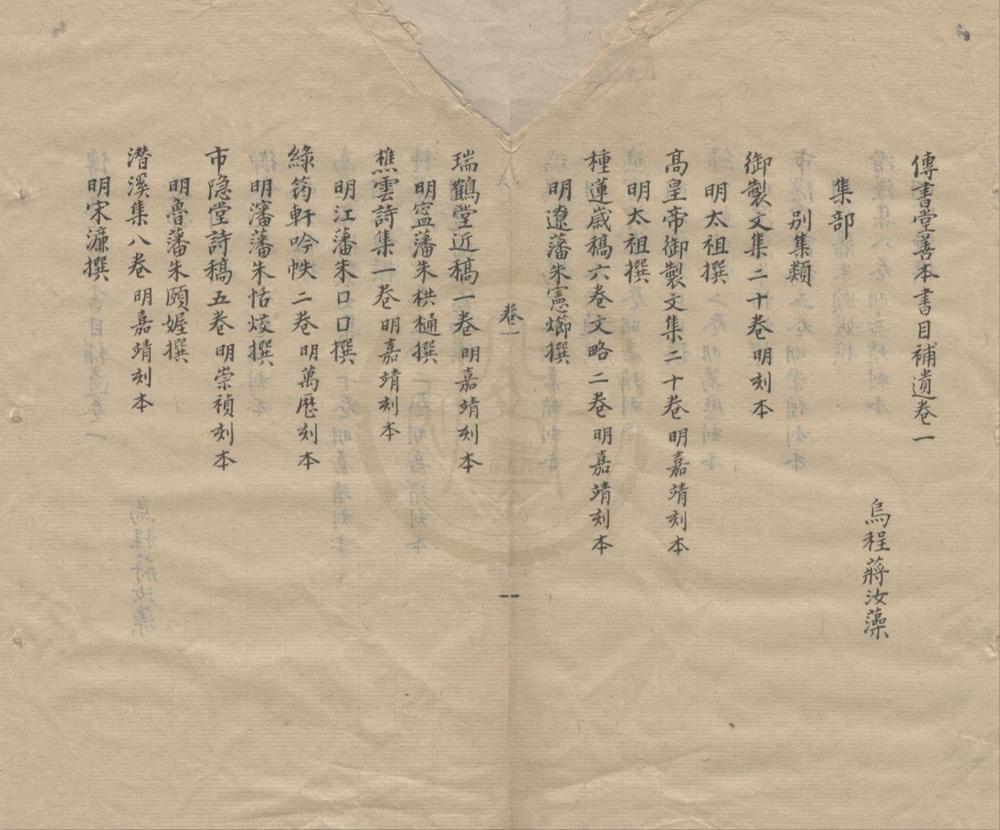 傳書堂善本書目補遺卷一
烏程蔣汝藻
集部
別集類
御製文集二十卷明刻本
明太祖撰
高皇帝御製文集二十卷明嘉靖刻本
明太祖撰
種蓮歲稿六卷文略二卷明嘉靖刻本
明遼藩朱憲㸅撰
卷一
一
瑞鶴堂近稿一卷明嘉靖刻本
明寧藩朱拱樋撰
樵雲詩集一卷明嘉靖刻本
明江藩朱口口撰
綠筠軒吟帙二卷明萬曆刻本
明瀋藩朱恬烄撰
市隱堂詩稿五卷明崇禎刻本
明魯藩朱頤媉撰
潛溪集八卷明嘉靖刻本
明宋濂撰